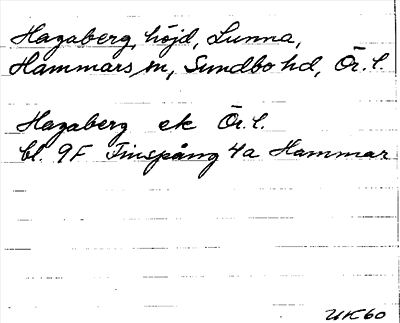 Hagaberg, höjd, Lunna,
Hammars sn, Sundbo hd, Ör. l.
Hagaberg ek Ör. l.
bl. 9F Finspång 4a Hammar
UK60